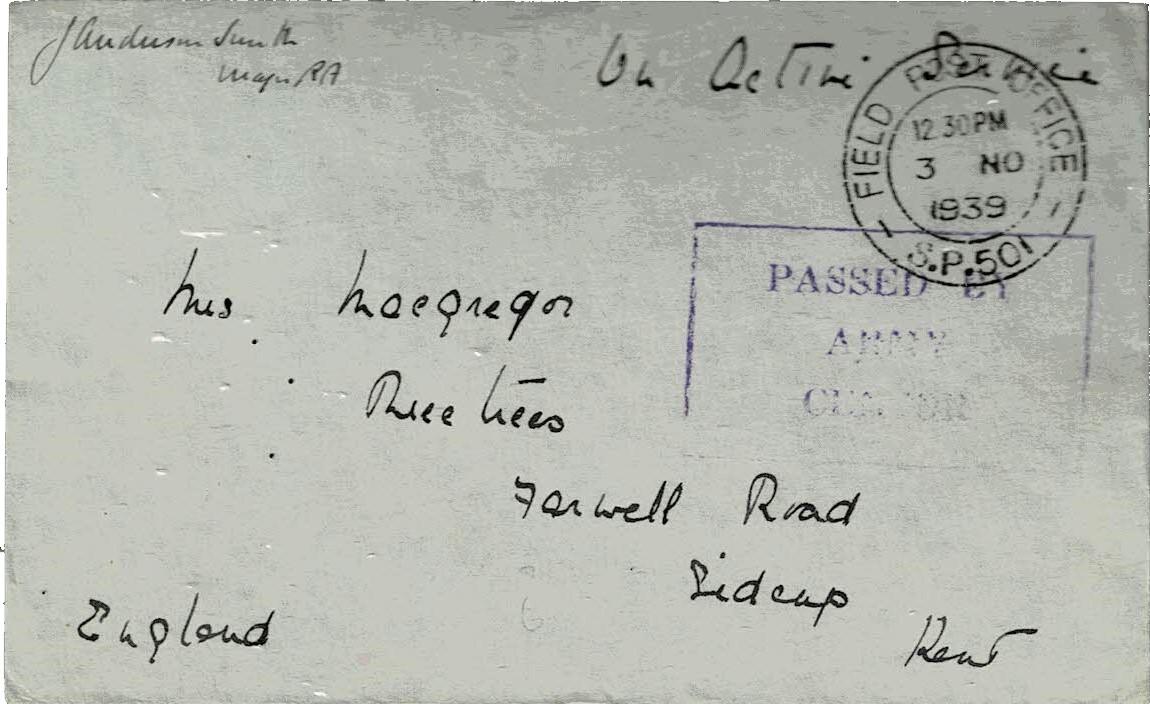 J Anderson Smith
Major RA
On Active Service
FIELD POST OFFICE
12.30PM
3 NO
1939
S.P.501
PASSED BY
ARMY
CENSOR
Mrs Macgregor
Three Trees
Farwell Road
Sidcup
Kent
England